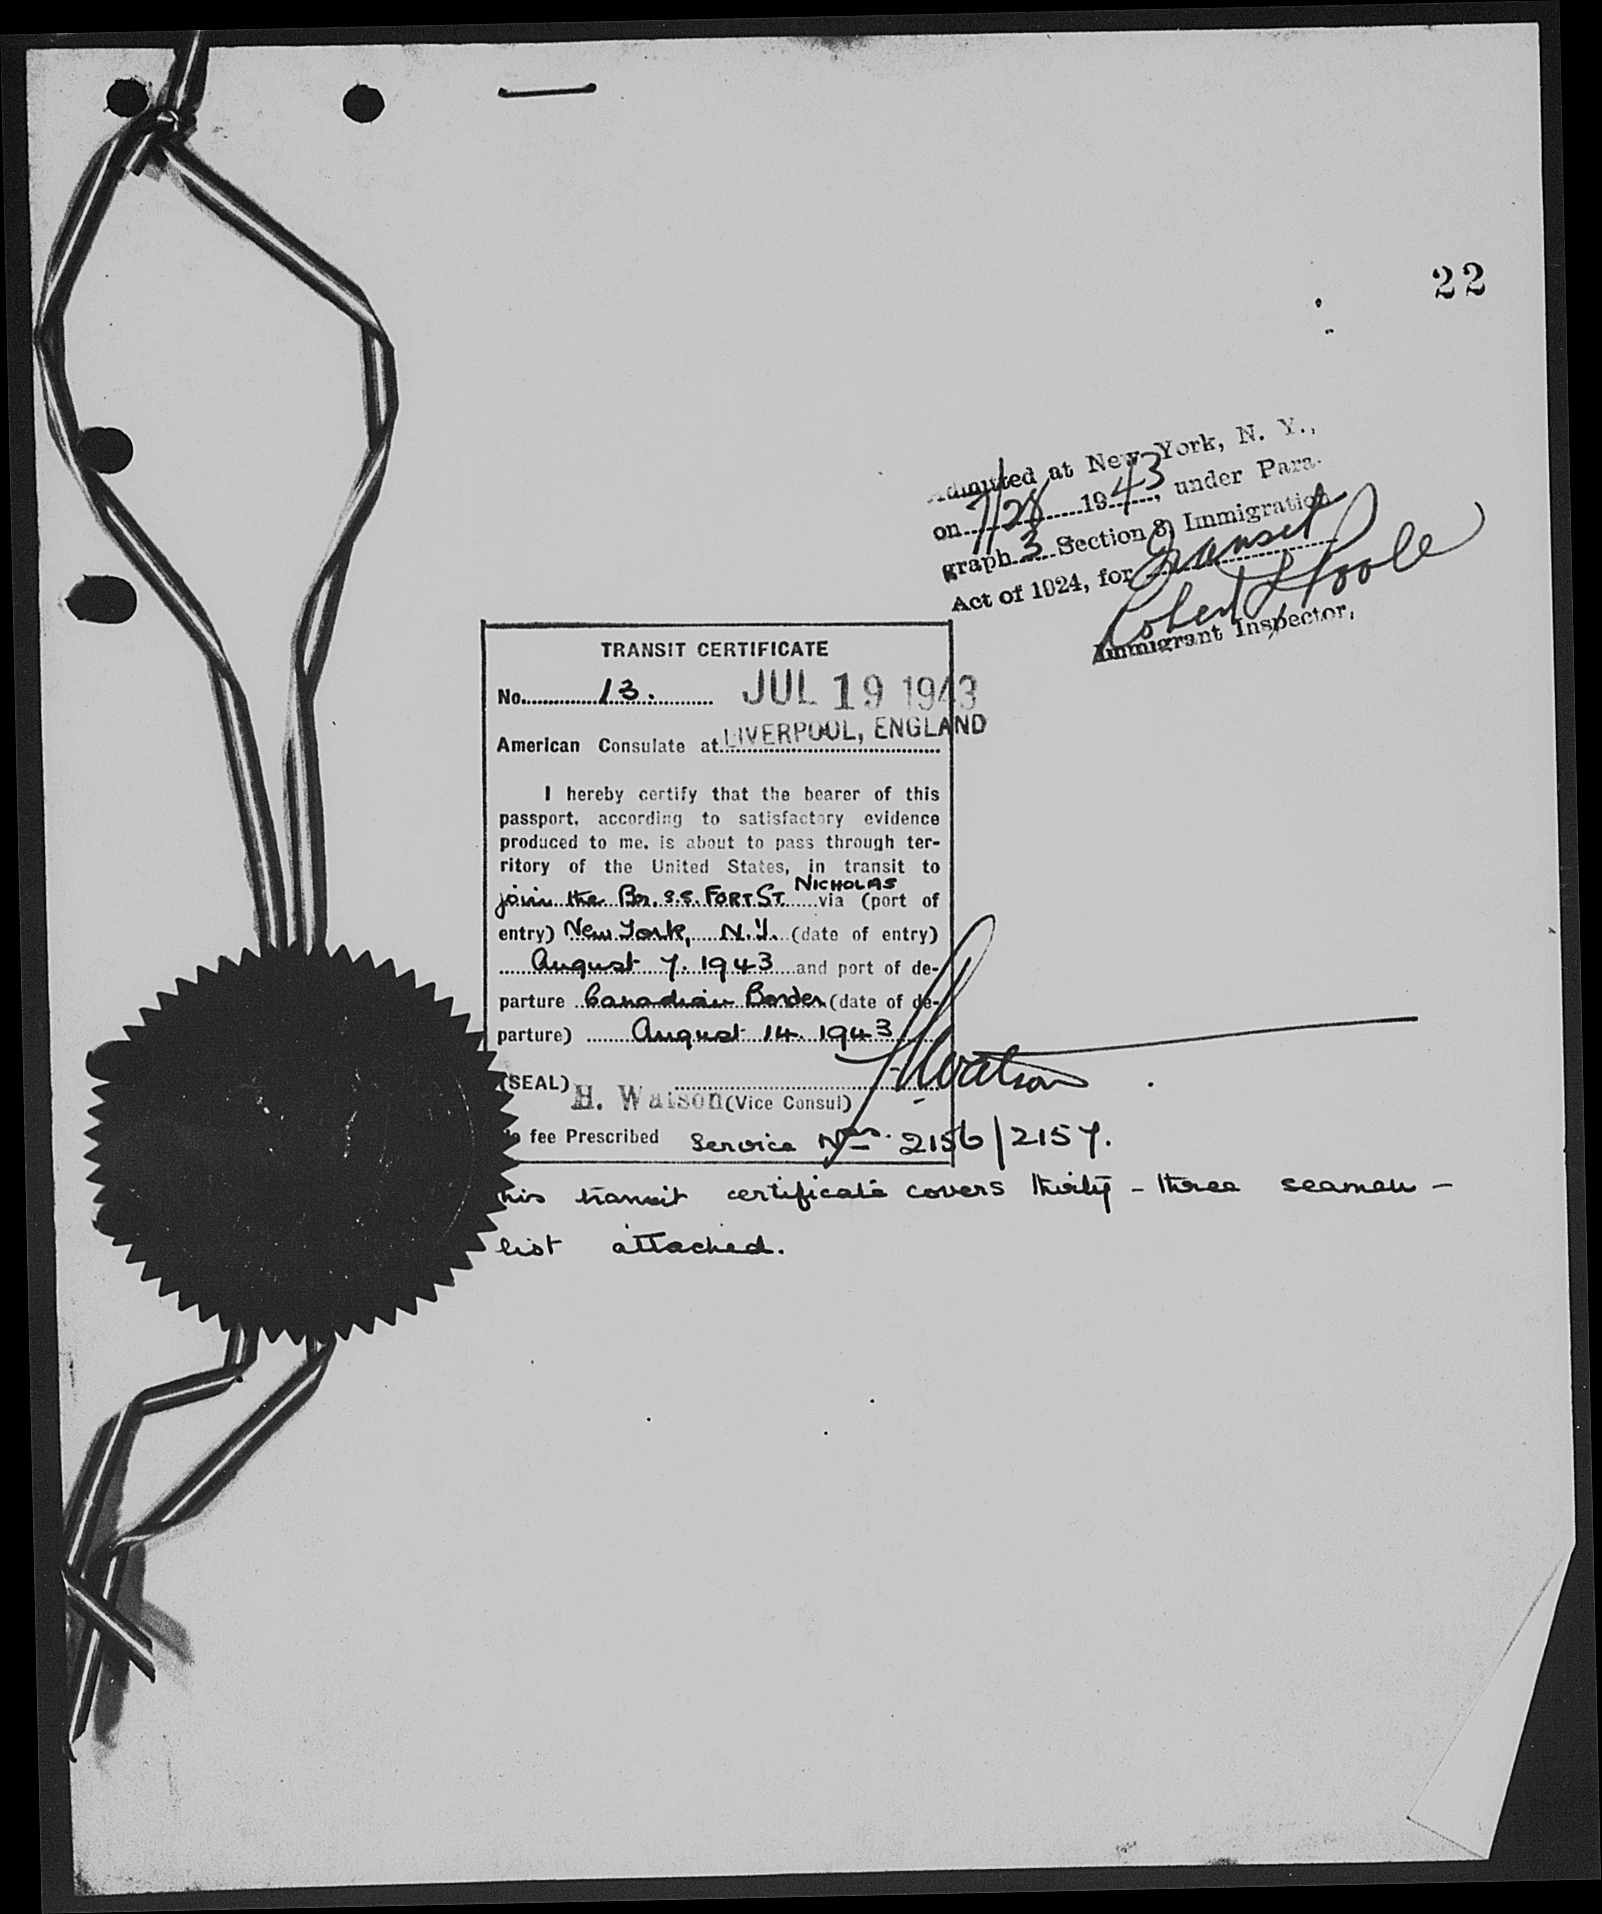 22
Admitted at New York, N. Y.,
on 7/28 1943, under Para-
graph 3 Section 3 Immigration
Act of 1924, for Transit
Robert L Poole
Immigrant Inspector,
TRANSIT CERTIFICATE
No. 13. JUL 19 1943
American Consulate at LIVERPOOL, ENGLAND
I hereby certify that the bearer of this
passport, according to satisfactory evidence
produced to me, is about to pass through ter-
ritory of the United States, in transit to
join the Br. S.S. FORT ST. NICHOLAS via (port of
entry) New York, N.Y. (date of entry)
August 7. 1943 and port of de-
parture Canadian Border (date of de-
parture) August 14. 1943
(SEAL) HWatson
H. Watson (Vice Consul)
fee Prescribed Service Nos. 2156/2157.
his transit certificate covers thirty-three seamen -
list attached.